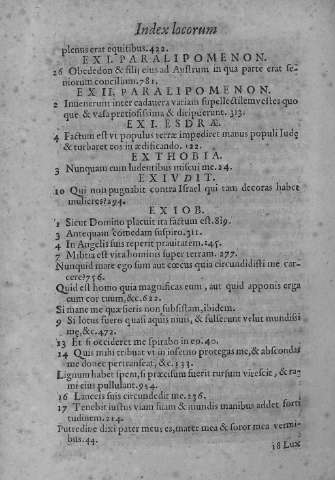 Index locorum
plenus erat equitibus.422.
EX I. PARALIPOMENON.
26 Obededon & filij eius ad Austrum in qua parte erat se-
niorum concilium.781.
EX II. PARALIPOMENON.
2 Inuenerunt inter cadauera variam supellectilem vestes quo
que & vasa pretiosissima & diripuerunt. 313.
EX I. ESDRÆ.
4 Factum est vt populus terræ impediret manus populi Iudę
& turbaret eos in ædificando. 122.
EX THOBIA.
3 Nunquam cum ludentibus miscui me.24.
EX IVDIT.
10 Qui non pugnabit contra Israel qui tam decoras habet
mulieres?294.
EX IOB.
1 Sicut Domino placuit ita factum est.819.
3 Antequam comedam suspiro.311.
4 In Angelis suis reperit prauitatem.145.
7 Militia est vita hominis super terram.277.
Nunquid mare ego sum aut cœcus quia circundidisti me car-
cere?756.
Quid est homo quia magnificas eum, aut quid apponis erga
eum cor tuum, &c.622.
Si mane me quæsieris non subsistam, ibidem.
9 Si lotus fuero quasi aquis niuis, & fulserunt velut mundissi
mę, &c.472.
13 Et si occideret me sperabo in eo.40.
14 Quis mihi tribuat vt in inferno protegas me, & abscondas
me donec pertranseat, &c.333.
Lignum habet spem, si præcisum fuerit rursum virescit, & ra
mi eius pullulant.954.
16 Lanceis suis circundedit me.236.
17 Tenebit iustus viam suam & mundis manibus addet forti
tudinem.214.
Putredine dixi pater meus es, mater mea & soror mea vermi-
bus.44.
18 Lux